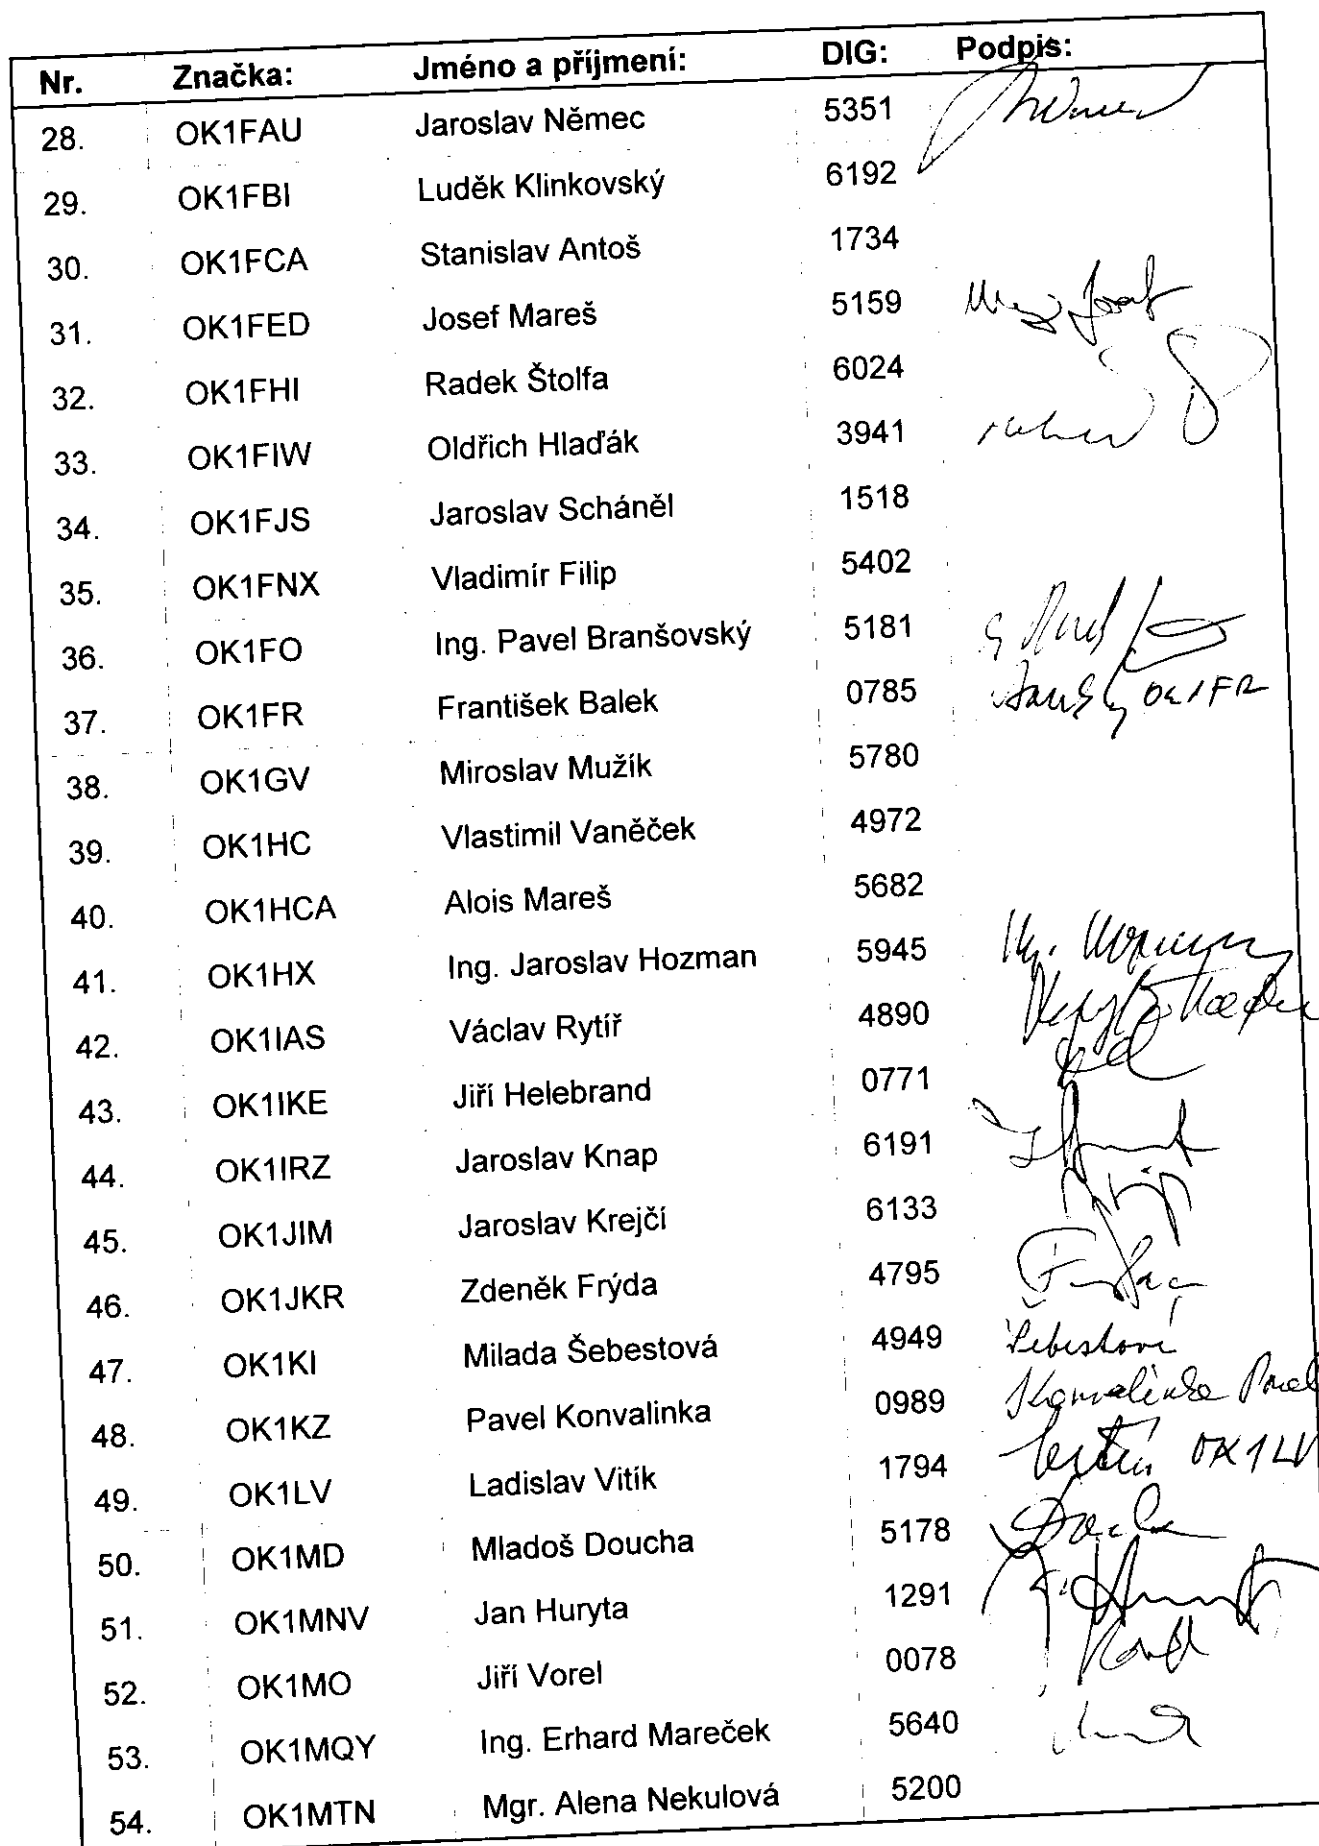 Nr. Značka: Jméno a příjmení: DIG: Podpis:
28. OK1FAU Jaroslav Němec 5351
29. OK1FBI Luděk Klinkovský 6192
30. OK1FCA Stanislav Antoš 1734
31. OK1FED Josef Mareš 5159
32. OK1FHI Radek Štolfa 6024
33. OK1FIW Oldřich Hlaďák 3941
34. OK1FJS Jaroslav Scháněl 1518
35. OK1FNX Vladimír Filip 5402
36. OK1FO Ing. Pavel Branšovský 5181
37. OK1FR František Balek 0785 OK1FR
38. OK1GV Miroslav Mužík 5780
39. OK1HC Vlastimil Vaněček 4972
40. OK1HCA Alois Mareš 5682
41. OK1HX Ing. Jaroslav Hozman 5945
42. OK1IAS Václav Rytíř 4890
43. OK1IKE Jiří Helebrand 0771
44. OK1IRZ Jaroslav Knap 6191
45. OK1JIM Jaroslav Krejčí 6133
46. OK1JKR Zdeněk Frýda 4795
47. OK1KI Milada Šebestová 4949 Šebestová
48. OK1KZ Pavel Konvalinka 0989 Konvalinka Pavel
49. OK1LV Ladislav Vitík 1794 OK1LV
50. OK1MD Mladoš Doucha 5178
51. OK1MNV Jan Huryta 1291
52. OK1MO Jiří Vorel 0078
53. OK1MQY Ing. Erhard Mareček 5640
54. OK1MTN Mgr. Alena Nekulová 5200